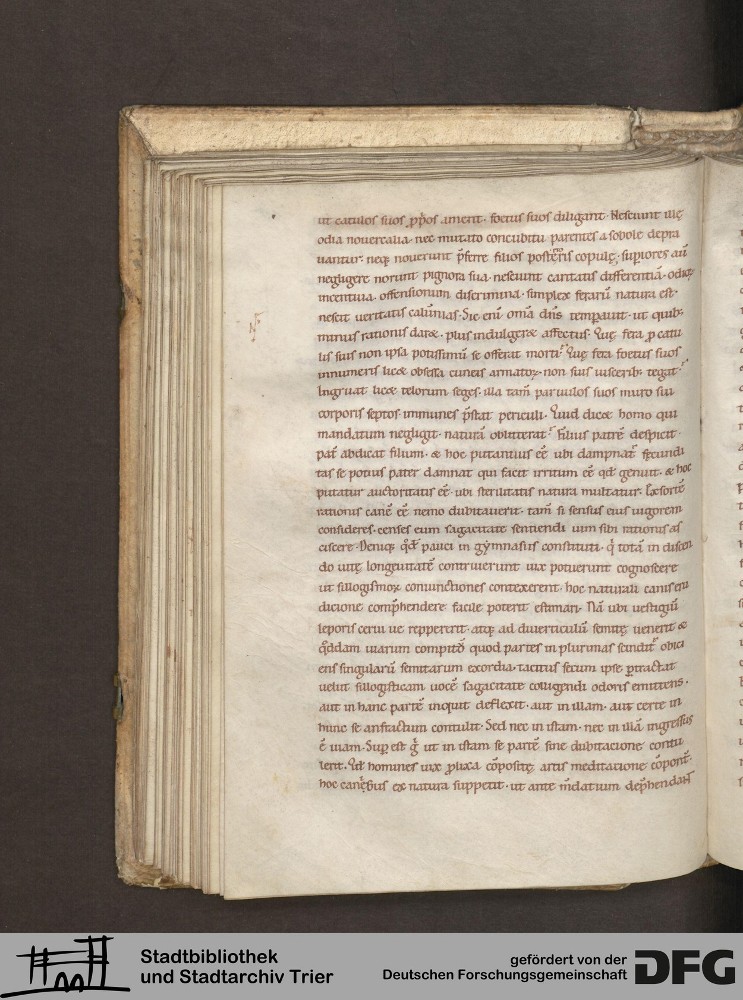 ut catulos suos ꝓp̃os ament· foetus suos diligant· Nesciunt illę
odia nouercalia· nec mutato concubitu parentes a sobole depra
uantur· neq; nouerunt p̃ferre filios posterioris copulę· supiores aũ
negligere norunt pignora sua· nesciunt caritatis differentiã· odiоꝝ
incentiua· offensionum discrimina· simplex ferarũ natura est·
nescit ueritatis calũnias· Sic eni omã dñs temperauit· ut quib;
minus rationis dar&· plus indulger& affectus· Quę fera ꝓ catu
lis suis non ipsa potissimũ se offerat morti? Quę fera foetus suos
innumeris lic& obsessa cuneis armatoꝝ· non suis uisceribꝰ tegit?
Ingruat lic& telorum seges· illa tam̃ paruulos suos muro sui
corporis septos· immunes p̃stat periculi· Quid dic& homo qui
mandatum negligit· naturã obliterat? Filius patrẽ despicit·
pat̃ abdicat filium· & hoc putant ius eẽ ubi dampnat̃ fecundi
tas se potius pater damnat qui facit irritum eẽ qd̃ genuit· & hoc
putatur auctoritatis eẽ· ubi sterilitatis natura multatur· Exsortẽ
rationis canẽ eẽ nemo dubitauerit· tam̃ si sensus eius uigorem
consideres· censes eum sagacitate sentiendi uim sibi rationis as
ciscere· Deniq; qd̃ pauci in gymnasiis constituti· q̃ totã in discen
do uitę longeuitatẽ contriuerunt uix potuerunt cognoscere
ut sillogismoꝝ coniunctiones contexerent· hoc naturali canis eru
dicione comp̃hendere facile poterit estimari· Nã ubi uestigiũ
leporis cerui ue reppererit· atq; ad diuerticulũ semitę uenerit &
q̃ddam uiarum compitũ quod partes in plurimas scindit̃ obici
ens singularũ semitarum exordia· tacitus secum ipse ꝑtractat
uelut sillogisticam uocẽ sagacitate colligendi odoris emittens·
aut in hanc partẽ inquit deflexit· aut in illam· aut certe in
hunc se anfractum contulit· Sed nec in istam· nec in illã ingressus
ẽ uiam· Supest g̃ ut in istam se partẽ sine dubitacione contu
lerit· Qd̃ homines uix ꝓlixa cõpositę artis meditacione cõponũt·
hoc canibus ex natura suppetit· ut ante m̃datium dep̃hendant
Stadtbibliothek
und Stadtarchiv Trier
gefördert von der
Deutschen Forschungsgemeinschaft
DFG